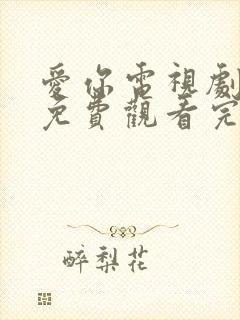 愛你電視劇
免費觀看完
醉梨花